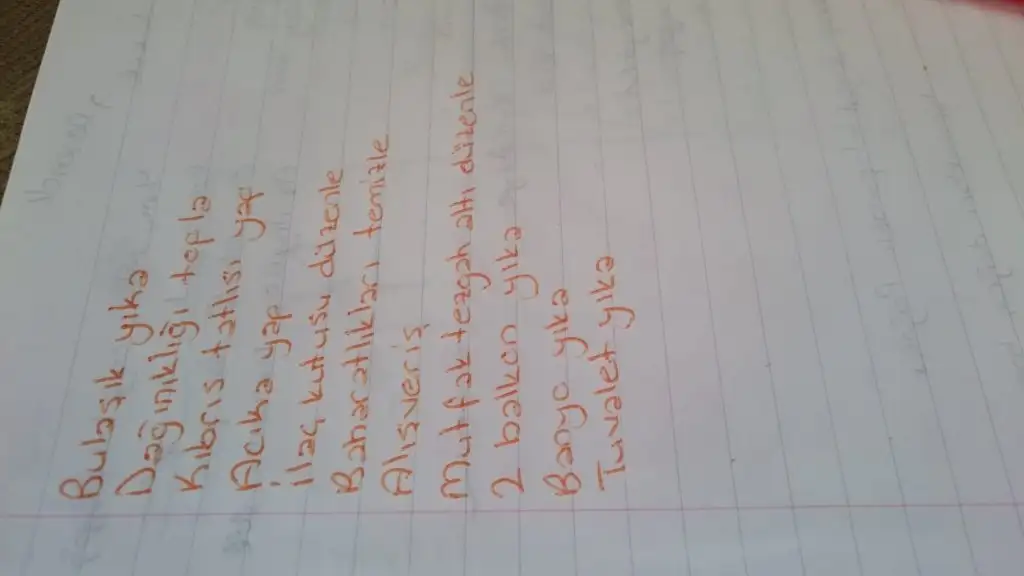 Bulaşık yıka
Dağınıklığı topla
Kıbrıs tatlısı yap
Acıka yap
İlaç kutusu düzenle
Baharatlıkları temizle
Alışveriş
Mutfak tezgah altı düzenle
2 balkon yıka
Banyo yıka
Tuvalet yıka